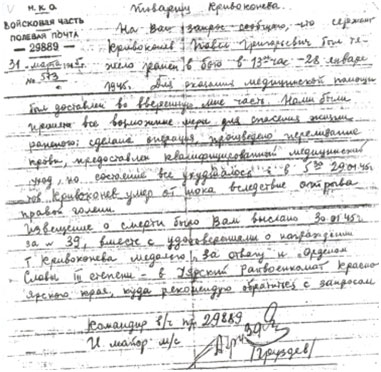 Н.К.О.
ВОЙСКОВАЯ ЧАСТЬ
ПОЛЕВАЯ ПОЧТА
— 29889 —
31 марта 1945 г.
№ 573
Товарищу Кривоконева.
На Ваш запрос сообщаю, что сержант
Кривоконев Павел Григорьевич был тя-
жело ранен в бою в 13 00 час - 28 января
1945. Для оказания медицинской помощи
был доставлен во вверенную мне часть. Нами были
приняты все возможные меры для спасения жизни
раненого: сделана операция, произведено переливание
крови, предоставлен квалифицированный медицинский
уход, но состояние все ухудшалось и в 5 30 29.01.45.
тов. Кривоконев умер от шока вследствие отрыва
правой голени.
Извещение о смерти было Вам выслано 30.01.45 г.
за № 39, вместе с удостоверением о награждении
т. Кривоконева медалью "За отвагу" и "Орденом
Славы III степени" - в Уярский Райвоенкомат Красно-
ярского края, куда рекомендую обратиться с запросом
Командир в/ч п/п 29889
И. майор м/с
/Груздев/